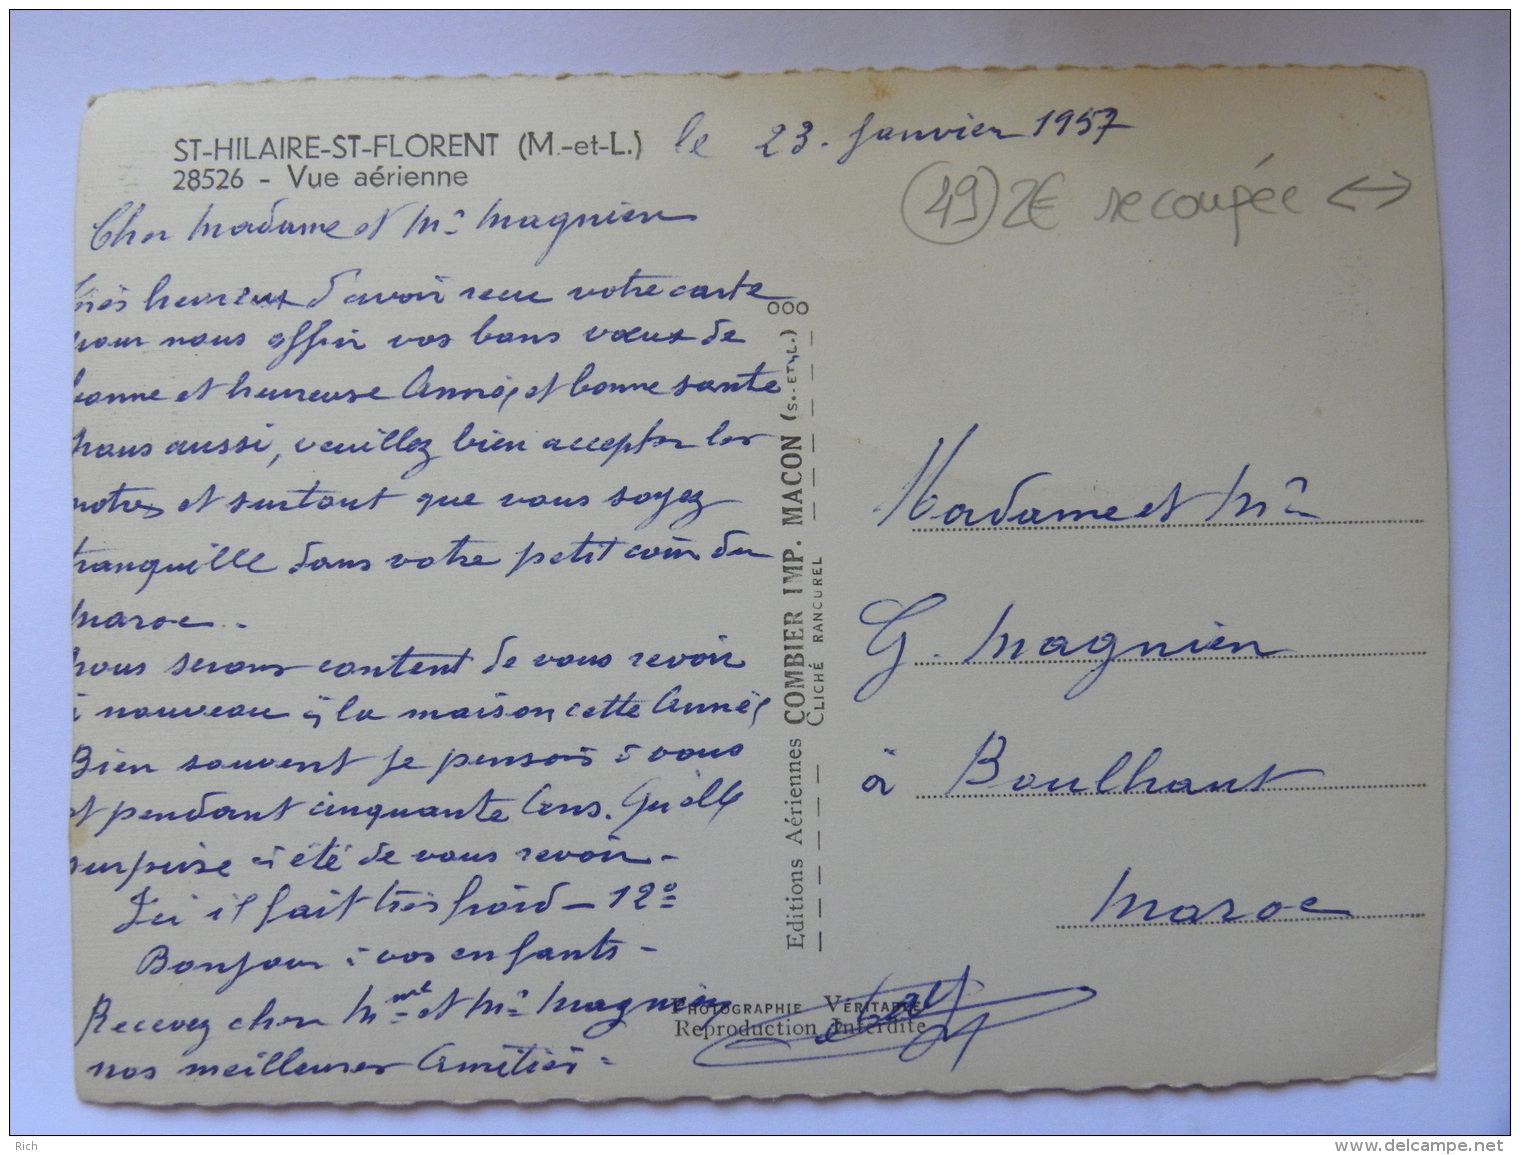 ST-HILAIRE-ST-FLORENT (M.-et-L.)
28526 - Vue aérienne
le 23. Janvier 1957
(49) 2€ recoupée ↔
Cher Madame et Mr Magnien
très heureux d'avoir recu votre carte
pour nous offrir vos bons vœux de
bonne et heureuse Année, et bonne sante
nous aussi, veuillez bien accepter les
notres et surtout que vous soyez
tranquille dans votre petit coin du
Maroc.
nous serons content de vous revoir
à nouveau à la maison, cette Année,
Bien souvent je pensais à vous
et pendant cinquante Ans. Qu'elle
surprise à été de vous revoir -
Ici il fait très froid - 12°
Bonjour à vos enfants -
Recevez cher Mme et Mr Magnien
nos meilleures Amitiés -
Madame et Mr
G. Magnien
à Boulhaut
Maroc
OOO
Editions Aériennes COMBIER IMP. MACON (S.-ET-L.)
CLICHÉ RANCUREL
PHOTOGRAPHIE VÉRITABLE
Reproduction Interdite
Rich
www.delcampe.net